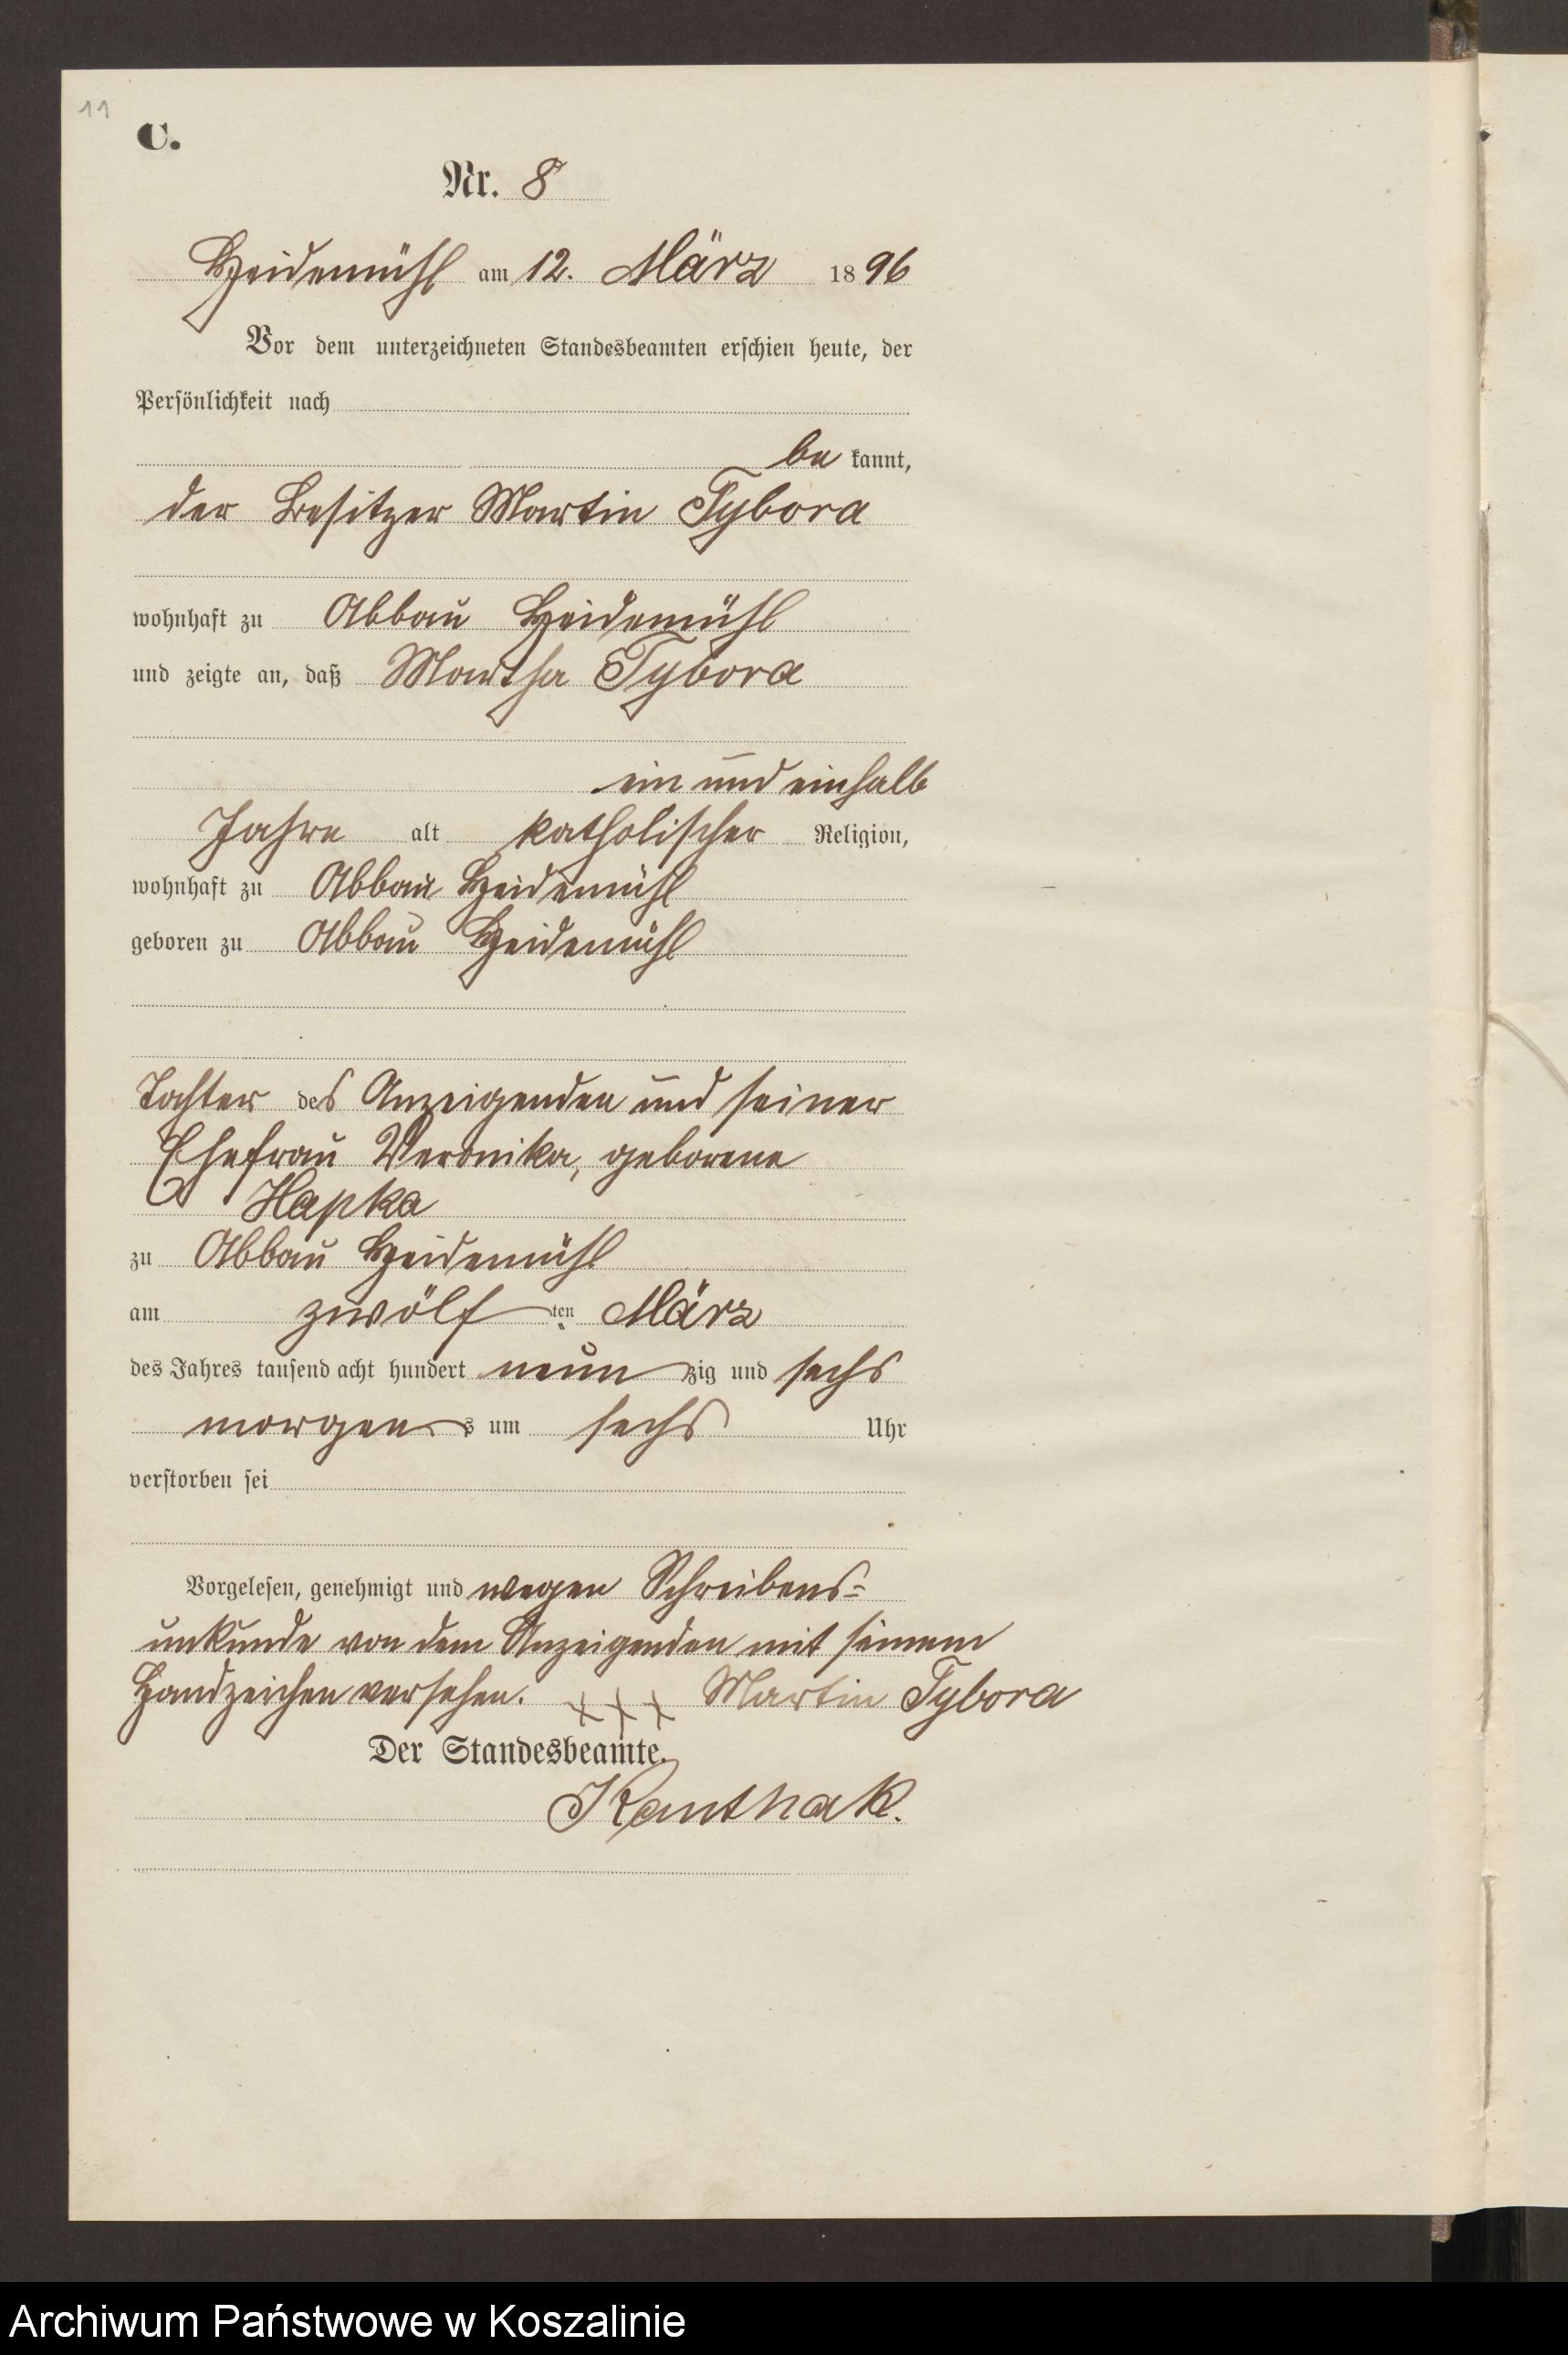 11
C.
Nr. 8
Heidemühl am 12. März 1896
Vor dem unterzeichneten Standesbeamten erschien heute, der
Persönlichkeit nach
be kannt,
der Besitzer Martin Tybora
wohnhaft zu Abbau Heidemühl
und zeigte an, daß Martha Tybora
ein und einhalb
Jahre alt katholischer Religion,
wohnhaft zu Abbau Heidemühl
geboren zu Abbau Heidemühl
Tochter des Anzeigenden und seiner
Ehefrau Veronika, geborene
Hapka
zu Abbau Heidemühl
am zwölf ten März
des Jahres tausend acht hundert neun zig und sechs
morgens um sechs Uhr
verstorben sei
Vorgelesen, genehmigt und wegen Schreibens=
unkunde von dem Anzeigenden mit seinem
Handzeichen versehen. XXX Martin Tybora
Der Standesbeamte.
Kanthak.
Archiwum Państwowe w Koszalinie